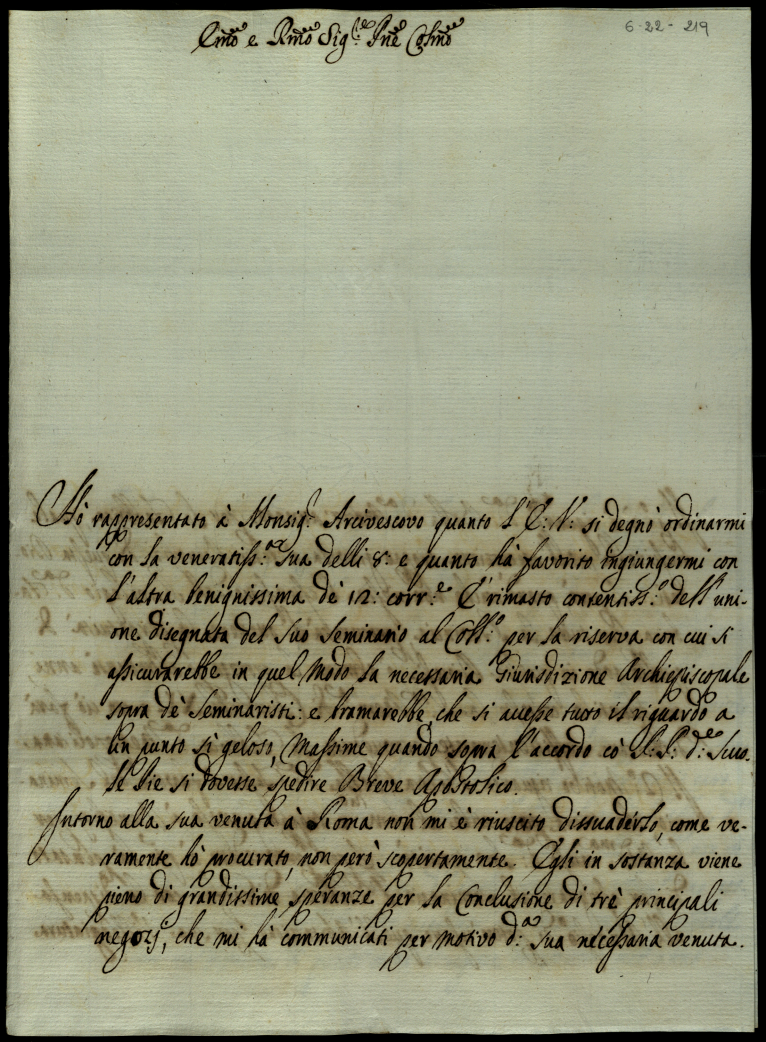 6-22-219
Emo e Rmo Sig.re Pne Colmo
Hò rappresentato à Monsig.r Arcivescovo quanto l'E: V: si degnò ordinarmi
con la veneratiss:ma sua delli 8: e quanto hà favorito ingiungermi con
l'altra benignissima de' 12: corr.te E' rimasto contentiss:o dell'uni-
one disegnata del suo Seminario al Coll:o per la riserva con cui si
assicurarebbe in quel modo la necessaria Giurisdizione Archiepiscopale
sopra de' Seminaristi: e bramarebbe, che si avesse tutto il riguardo a
un punto sì geloso, massime quando sopra l'accordo cò P: P: d:e Scuo-
le Pie si dovesse spedire Breve Apostolico.
Intorno alla sua venuta à Roma non mi è riuscito dissuaderlo, come ve-
ramente hò procurato, non però scopertamente. Egli in sostanza viene
pieno di grandissime speranze per la Conclusione di trè principali
negozj, che mi hà communicati per motivo d:a sua necessaria venuta.